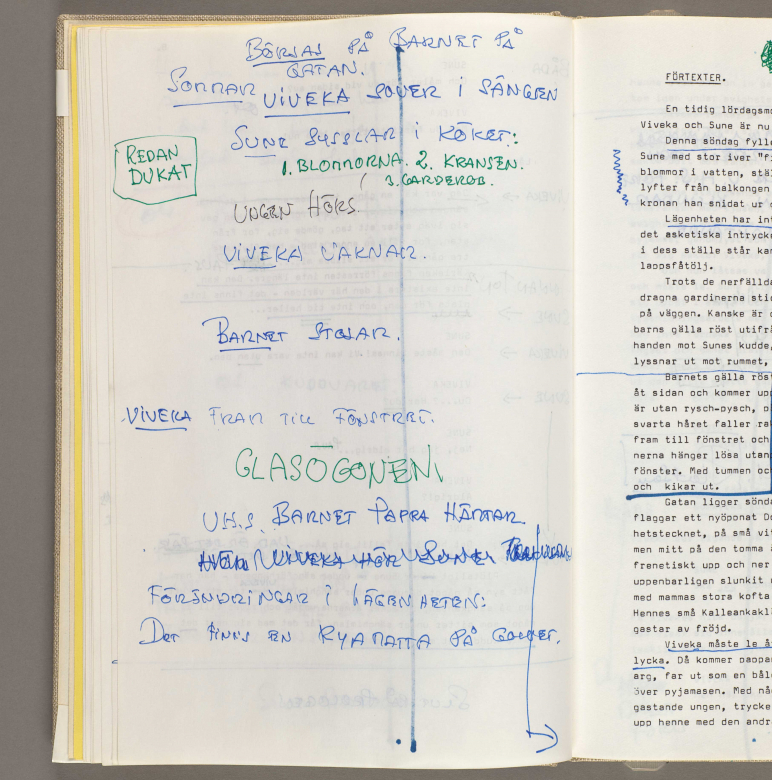 BÖRJAS PÅ BARNET PÅ
GATAN.
SOMMAR VIVEKA SOVER I SÄNGEN
SUNE SYSSLAR I KÖKET:
1. BLOMMORNA. 2. KRANSEN.
3. GARDEROB.
REDAN
DUKAT
UNGEN HÖRS.
VIVEKA VAKNAR.
BARNET STOJAR.
VIVEKA FRAM TILL FÖNSTRET.
GLASÖGONEN!
BARNET PAPPA HÄMTAR.
VIVEKA HÖR SUNE
FÖRÄNDRINGAR I LÄGENHETEN:
DET FINNS EN RYAMATTA PÅ GOLVET.
FÖRTEXTER.
En tidig lördagsmo
Viveka och Sune är nu
Denna söndag fylle
Sune med stor iver "f
blommor i vatten, stäl
lyfter från balkongen
kronan han snidat ur
Lägenheten har int
det asketiska intryck
i dess ställe står kar
lappsfåtölj.
Trots de nerfällda
dragna gardinerna sti
på väggen. Kanske är
barns gälla röst utifr
handen mot Sunes kudde,
lyssnar ut mot rummet,
Barnets gälla rös
åt sidan och kommer upp
är utan rysch-pysch, p
svarta håret faller ra
fram till fönstret och
nerna hänger lösa utan
fönster. Med tummen oc
och kikar ut.
Gatan ligger sönda
flaggar ett nyöponat Do
hetstecknet, på små vi
men mitt på den tomma
frenetiskt upp och ner
uppenbarligen slunkit
med mammas stora kofta
Hennes små Kalleankakl
gastar av fröjd.
Viveka måste le å
lycka. Då kommer pappa
arg, far ut som en bål
över pyjamasen. Med nå
gastande ungen, trycke
upp henne med den andr